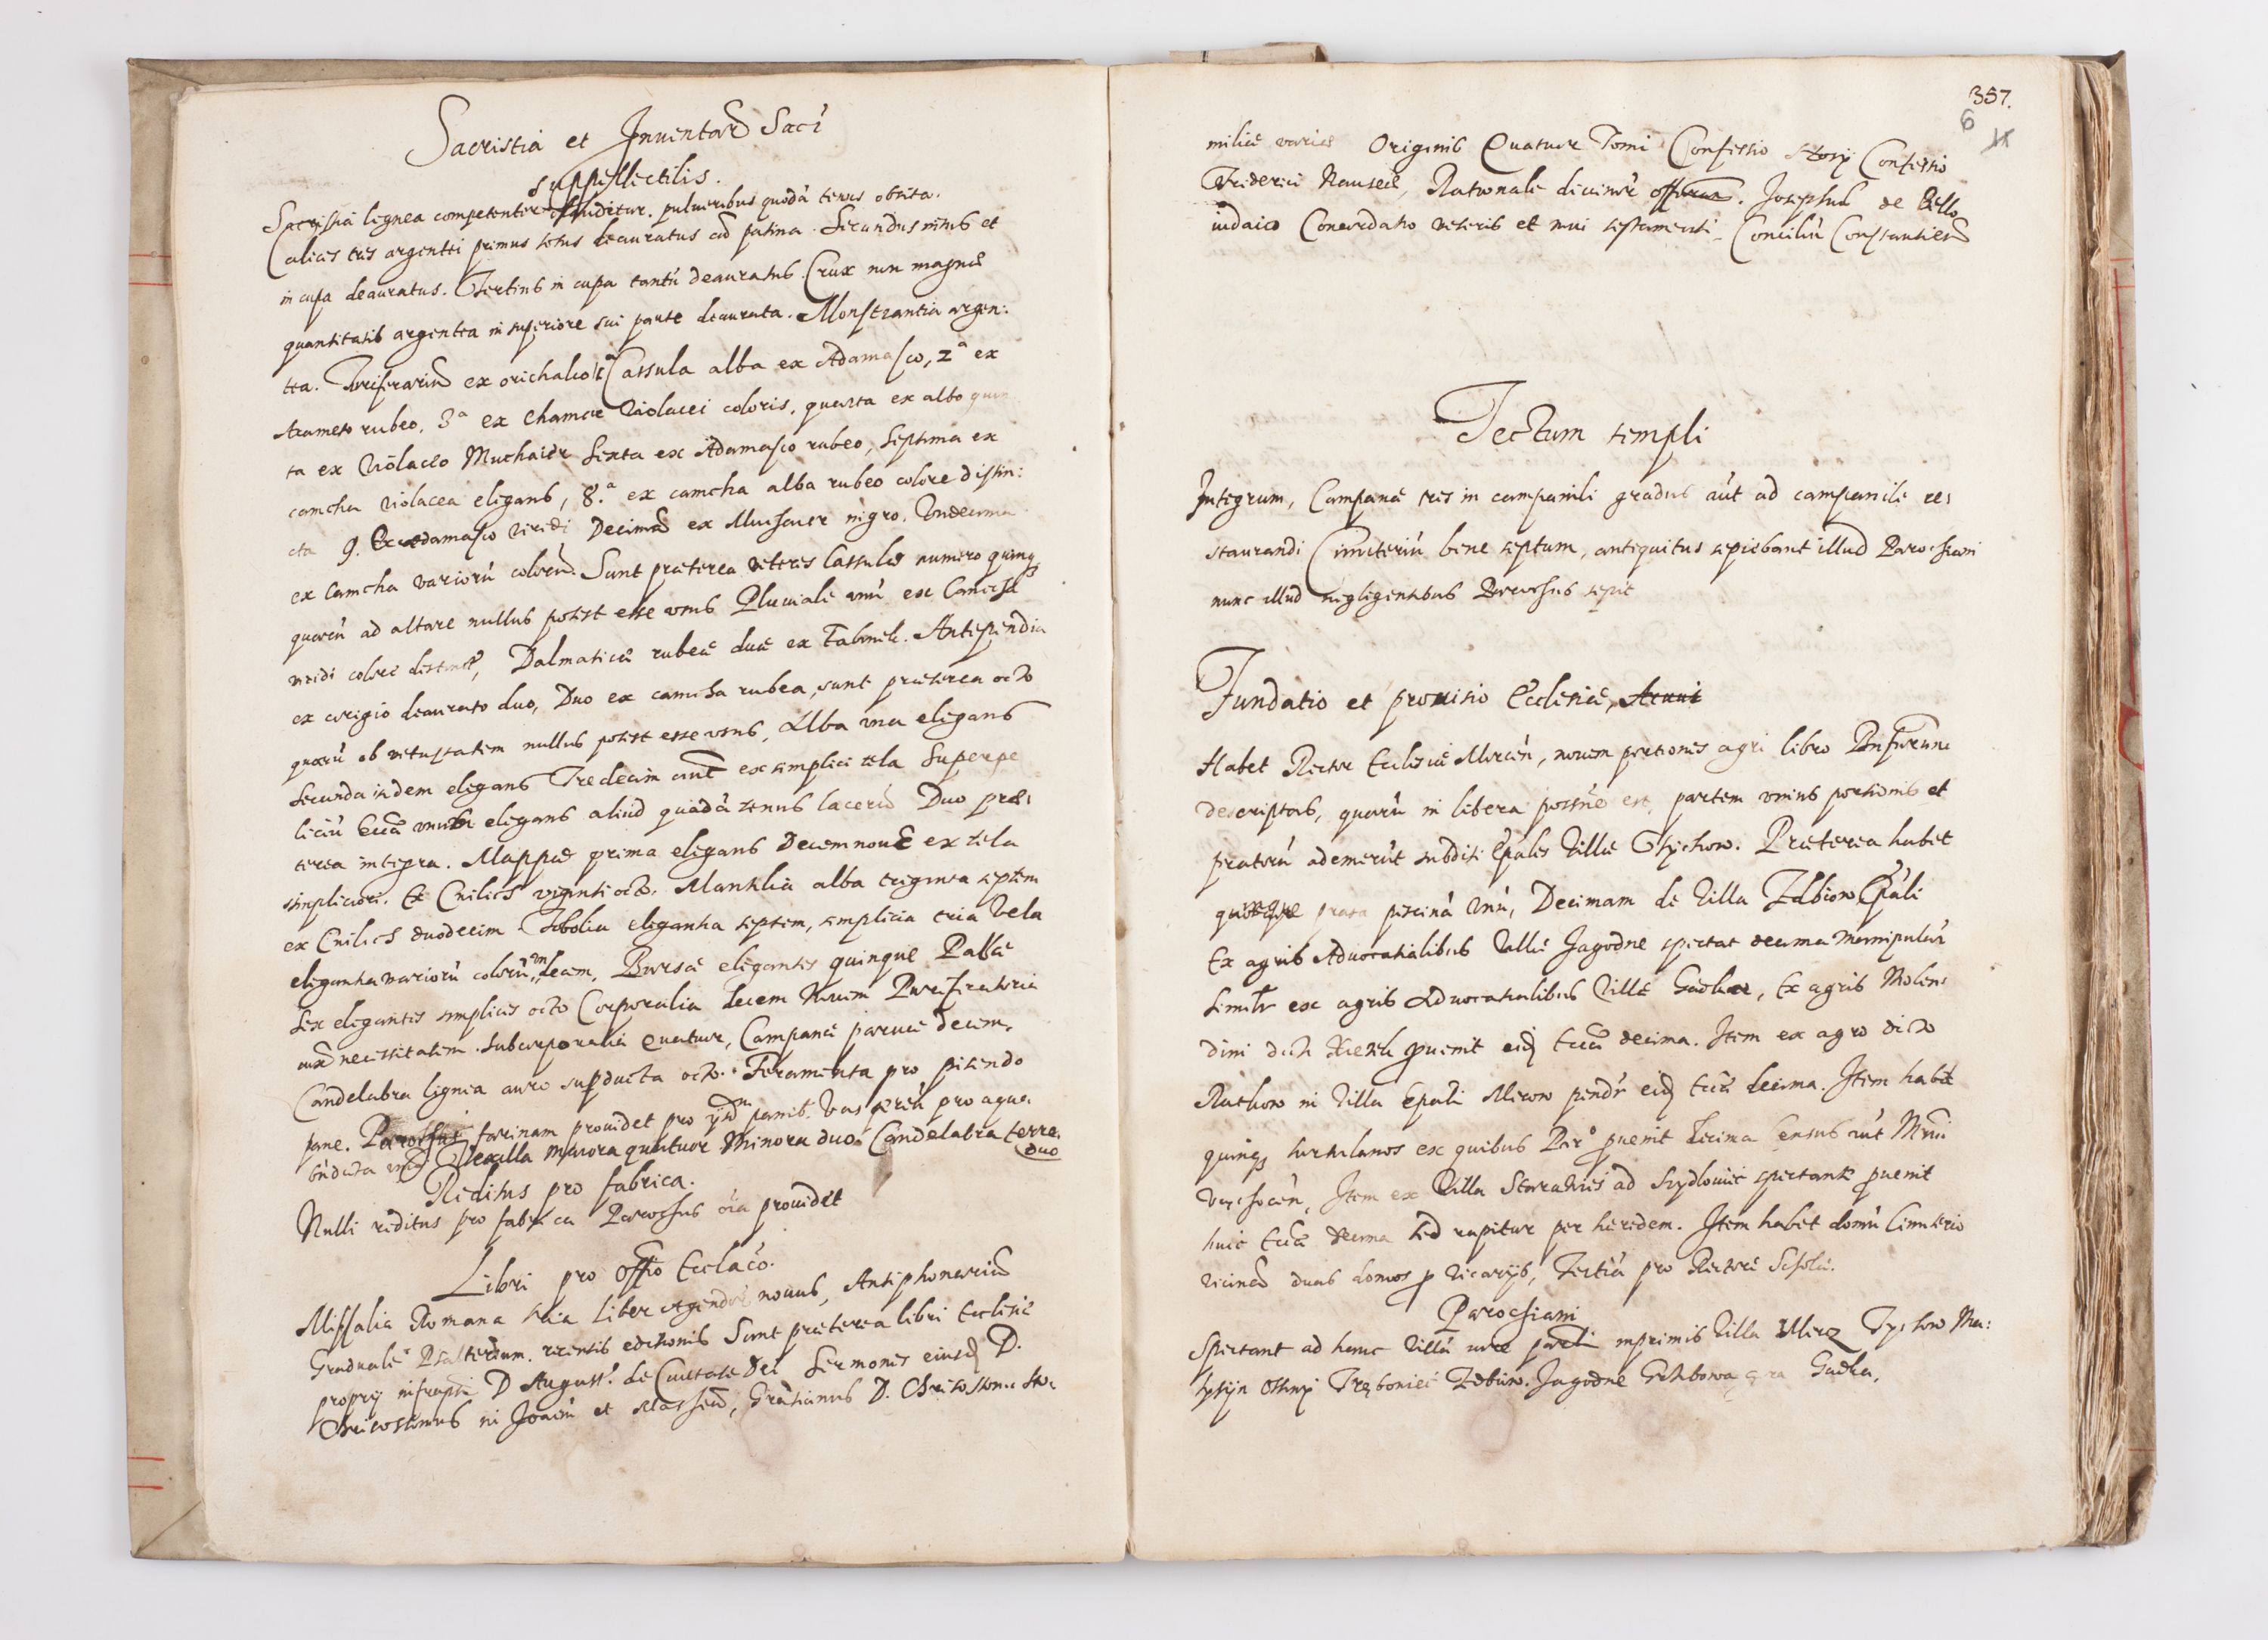 Sacristia et Inventarũ Sacř
suppellectilis.
Sacristia lignea competenter clauditur. pulueribus quodã tenus obsita.
Calices tres argentei primus totus deauratus cũ patina. Secundus intus et
in cupa deauratus. Tertius in cupa tantũ deauratus. Crux non magnæ
quantitatis argentea in superiore sui parte deaurata. Monstrantia argen:
tea. Turiferariũ ex orichalco 1ª Cassula alba ex Adamasco, 2ª ex
Axameto rubeo, 3ª ex Chamcæ Violacei coloris, quarta ex albo quin
ta ex violaceo Muchaier Sexta ex Adamasco rubeo, Septima ex
camcha violacea elegans, 8.ª ex camcha alba rubeo colore distin:
cta 9. Ex Adamasco viridi Decimã ex Muchaier nigro. Vndecima
ex Camcha variorũ colorũ. Sunt præterea veteres Cassulæ numero quinq
quarũ ad altare nullus potest esse vsus Pluuiale vnũ ex Camcha
viridi colore, Dalmaticæ rubeæ duæ ex. Antipendia
ex corigio deaurato duo, Duo ex camcha rubea, sunt præterea octo
quorũ ob vetustatem nullus potest esse vsus, Alba vna elegans
Secunda itidem elegans Tredecim aũt ex simplici tela Superpe
liciũ elegans aliud quadã tenus lacerũ Duo præ:
terea integra. Mappæ prima elegans Decemnouẽ ex tela
simpliciori. Ex Cnilich viginti octo. Mantilia alba triginta septem
ex Cnilich duodecim Tobolia eligantia septem, simplicia tria Vela
elegantia variorũ colorũ decem, Bursæ elegantes quinque Pallæ
Sex elegantes simplices octo Corporalia decem Nouem Purificatoria
necessitatem. Subcorporalia Quatuor, Campanæ paruæ decem.
Candelabra lignea auro supducta octo. Feramenta pro pisendo
pane. Parochus farinam prouidet pro panib. Vas æreũ pro aqua
Vexilla maiora quatuor Minora duo. Candelabra terre.
duo
Reditus pro fabrica.
Nulli reditus pro fabrica Parochus oĩa prouidet
Libri pro Offio Ecclaco.
Missalia Romana tria Liber Agendorũ nouus, Antiphonariũ
Graduale Psalterium. recentis editionis Sunt præterea libri Ecclesiæ
proprij D August. de Ciuitate Dei Sermones eiusd D.
Chrisostomus in Joañ et Matheũ, Gratianus D. Chrisostomi
357.
6
miliæ variæ Originis Quatuor Tomi Confessio Confessio
Friderici Nauseæ, Rationale diuinorũ officiorum. Josephus de Bello
iudaico Concordatio veteris et noui testamenti. Conciliũ Constantiensẽ
Tectum templi
Integrum, Campanæ tres in campanili gradus aũt ad campanile re:
staurandi Cimiteriũ bene septum, antiquitus sepiebant illud Parochiani
nunc illud negligentibus Parochus sepit
Fundatio et prouisio Ecclesiæ,
Habet Rector Ecclesiæ, nouem portiones agri libro
descriptas, quarũ in libera possñe est, partem vnius portionis et
pratorũ ademerũt subditi Epales Villæ Thychow. Præterea habet
quinque prata piscinã vnã, Decimam de Villa Zdbiow Epali
Ex agris Aduocatialibus Villæ Jagodne spectat decima manipularũ
similr ex agris Aduocatialibus Villæ Gadka, Ex agris Molen:
dini dicti puenit eid Eccæ decima. Item ex agro dicto
Rathow in Villa Epali Mirow pendr eid Eccæ decima. Item habet
quinq hortulanos ex quibus Par.º puenit decima Census aũt
Item ex Villa ad Szydlouiec spectante puenit
huic Eccæ decima sed rapitur per heredem. Item habet domũ Cimiterio
vicinã duas domos p Vicarijs, Tertiã pro Rectore Scholæ.
Parochiani
Spectant ad hanc Villã inprimis Villa Mircz Tychow Ma:
Ostrozj Trębowiec Zdbiow. Jagodne Gadka.